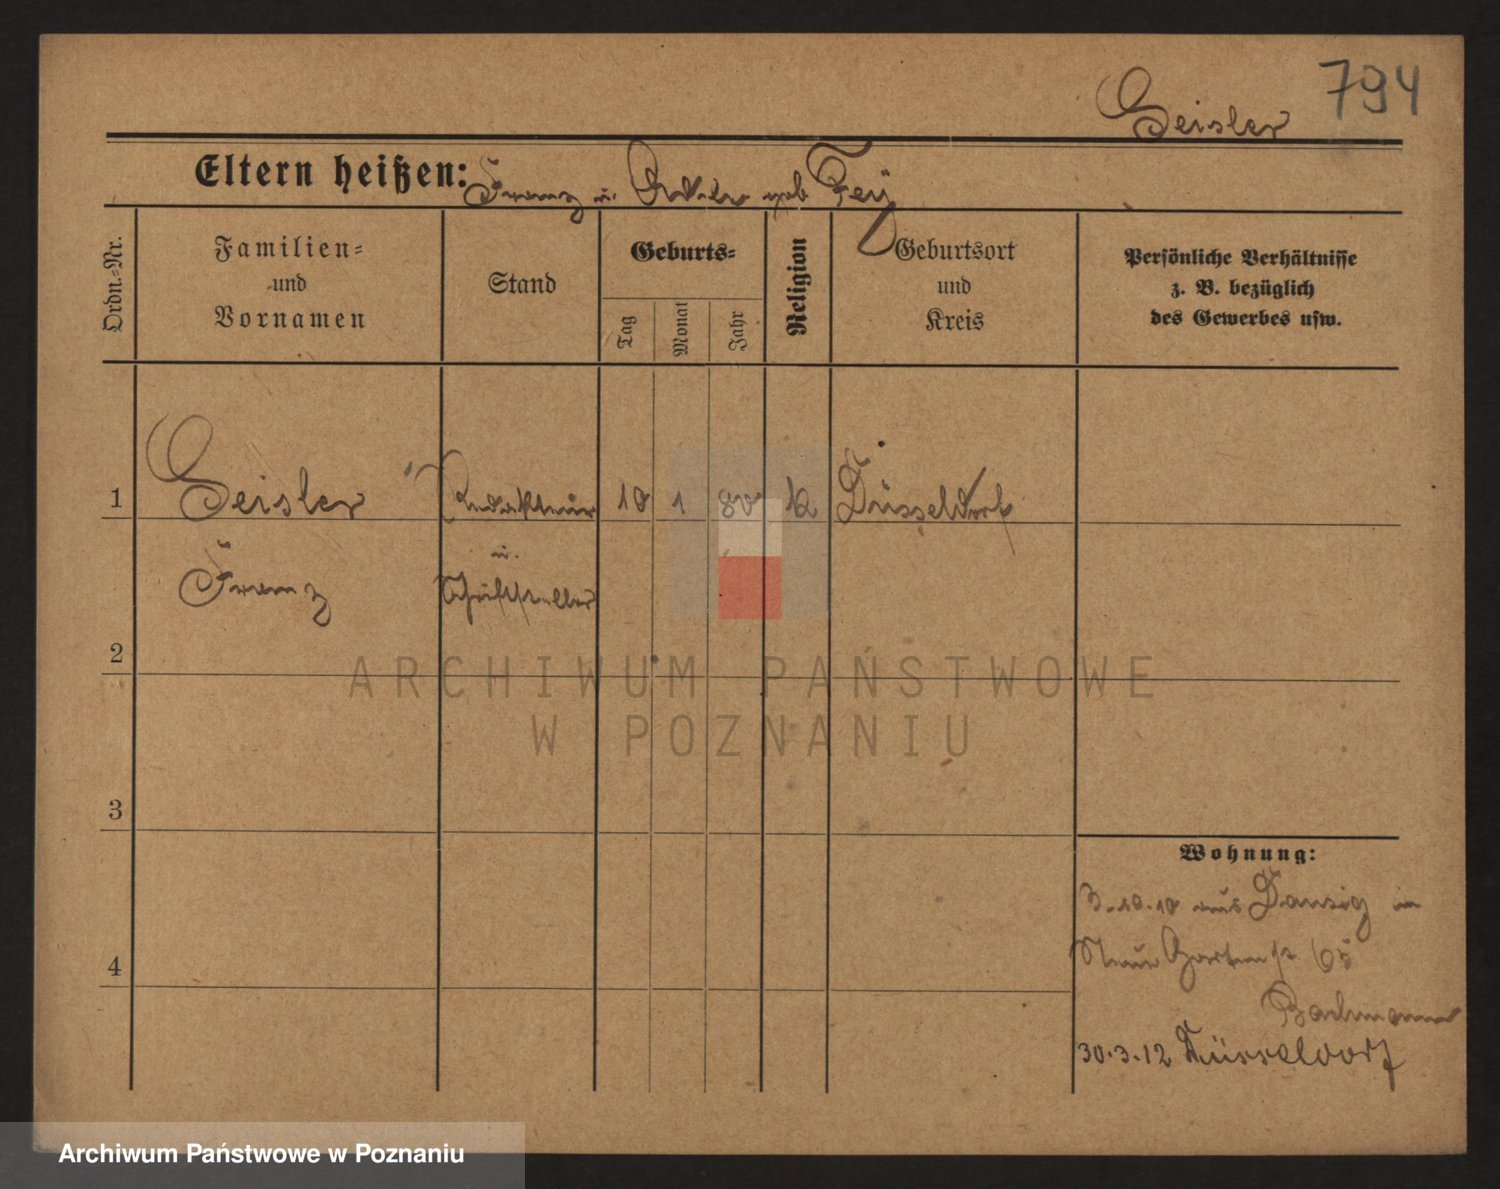 794
Geisler
Eltern heißen: Franz u. geb Fey
Ordn.-Nr.
Familien-
und
Vornamen
Stand
Geburts-
Tag
Monat
Jahr
Religion
Geburtsort
und
Kreis
Persönliche Verhältnisse
z. B. bezüglich
des Gewerbes usw.
1 Geisler Redakteur 10 1 80 k Düsseldorf
u.
Franz Schriftsteller
2
3
4
Wohnung:
3.10.10 aus Danzig in
Neue Gartenstr 65
Bachmann
30.3.12 Düsseldorf
ARCHIWUM PAŃSTWOWE
W POZNANIU
Archiwum Państwowe w Poznaniu